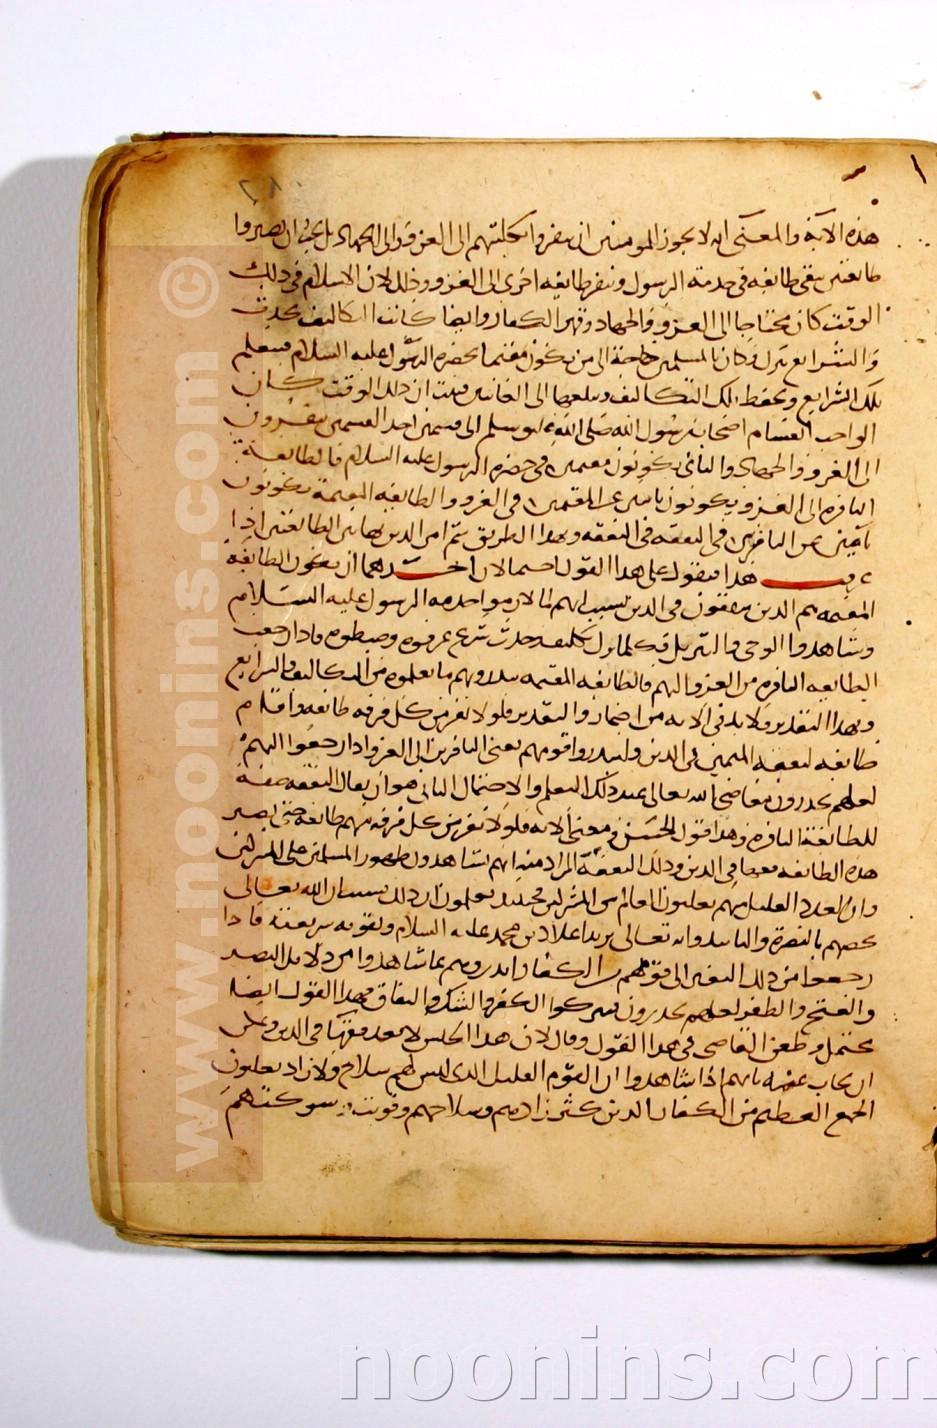 هذه الآية والمعنى انه لا يجوز للمومنين ان ينفروا بكليتهم الى الغزو والى الجهاد بل يجب ان يصيروا
طائفتين يبقى طائفه في خدمة الرسول وينفر طايفه اخرى الى الغزو وذلك لان الاسلام في ذلك
الوقت كان محتاجا الى الغزو والجهاد وقهر الكفار وايضا كانت التكاليف تحدث
والشرايع تنزل وكان بالمسلمين حاجة الى من يكون مقيما بحضره الرسول عليه السلام فيتعلم
تلك الشرايع ويحفظ تلك التكاليف ويبلغها الى الغائبين فثبت ان ذلك الوقت كان
الواجب انقسام اصحاب رسول الله صلى الله عليه وسلم الى قسمين احد القسمين ينفرون
الى الغزو والجهاد والثاني يكونون مقيمين في حضره الرسول عليه السلام فالطايفة
النافره الى الغزو يكونون نايبين عن المقيمين في الغزو والطايفه المقيمة يكونون
نايبين عن النافرين في التفقه وبهذا الطريق يتم امر الدين بهاتين الطائفتين اذا
عرفت هذا فنقول على هذا القول احتمالان احدهما ان يكون الطايفة
المقيمه هم الذين يتفقهون في الدين بسبب انهم لما لازموا خدمه الرسول عليه السلام
وشاهدوا الوحي والتنزيل فكلما نزل تكليف وحدث شرع عرفوه وضبطوه فاذا رجعت
الطايفه النافره من الغزو اليهم فالطايفه المقيمه ينذرونهم ما تعلموه من التكاليف والشرايع
وبهذا التقدير فلا بد في الآيه من اضمار والتقدير فلولا نفر من كل فرقه طايفه واقام
طايفه ليتفقه المقيمين في الدين ولينذروا قومهم يعني النافرين الى الغزو اذا رجعوا اليهم
لعلهم يحذرون معاصي الله تعالى عند ذلك التعلم والاحتمال الثاني هو ان يقال التفقه صفة
للطائفة النافرة وهذا قول الحسن ومعنى الآيه فلولا نفر من كل فرقه منهم طايفه حتى يصير
هذه الطايفه فقها في الدين وذلك التفقه المراد منه انهم يشاهدون ظهور المسلمين على المشركين
وان العدد القليل منهم يغلبون العالم من المشركين فحينئذ يعلمون ان ذلك بسبب ان الله تعالى
خصهم بالنصرة والتاييد وانه تعالى يريد اعلا دين محمد عليه السلام وتقويه شريعته فاذا
رجعوا من ذلك النفير الى قومهم من الكفار انذروهم بما شاهدوا من دلايل النصر
والفتح والظفر لعلهم يحذرون فيتركوا الكفر والشك والنفاق فهذا القول ايضا
محتمل وطعن القاضي في هذا القول وقال لان هذا الجنس لا يعد فقها في الدين ويمكن
ان يجاب عنه بانهم اذا شاهدوا ان القوم القليل الذي ليس لهم سلاح ولا زاد يغلبون
الجمع العظيم من الكفار الذين كثر زادهم وسلاحهم وقويت شوكتهم
www.noonins.com ©
noonins.com